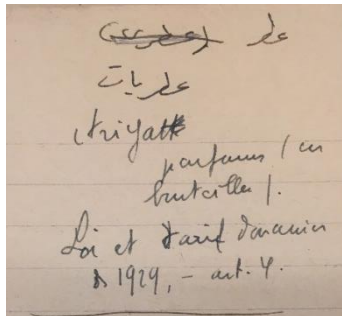 عطر
عطريات
ıtriyat
parfums (en
bouteilles).
Loi et tarif douanier
1929, - art. 4.